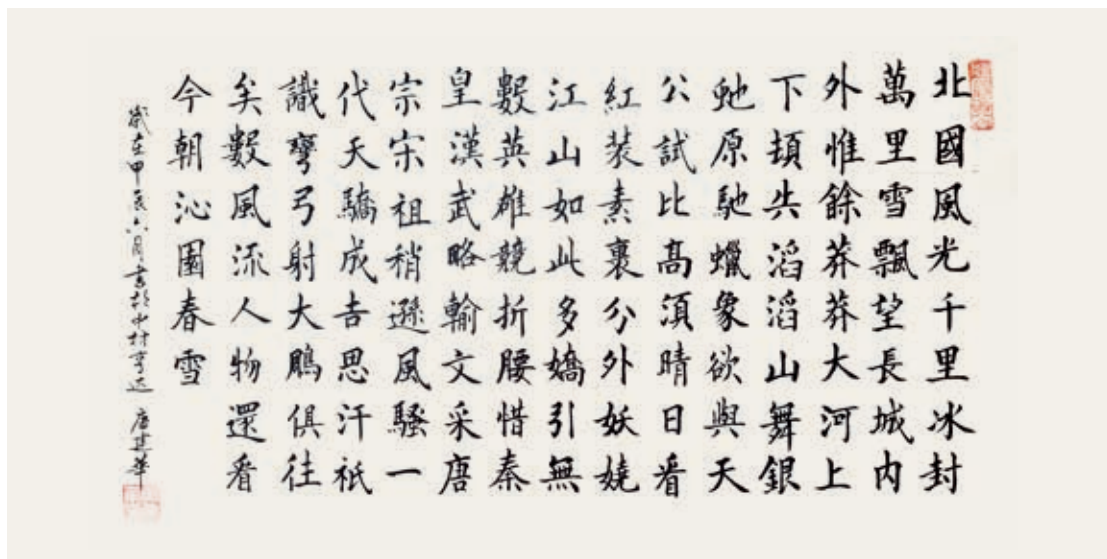 北國風光千里冰封
萬里雪飄望長城内
外惟餘莽莽大河上
下頓失滔滔山舞銀
虵原馳蠟象欲與天
公試比高須晴日看
紅裝素裹分外妖嬈
江山如此多嬌引無
數英雄競折腰惜秦
皇漢武略輸文采唐
宗宋祖稍遜風騷一
代天驕成吉思汗衹
識彎弓射大鵰俱往
矣數風流人物還看
今朝沁園春雪
歲在甲六月書於中村